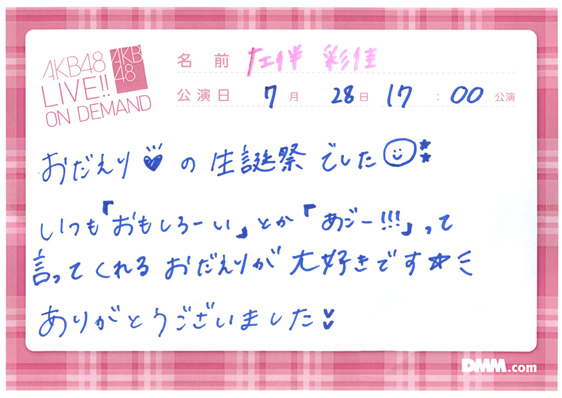 AKB48
LIVE!!
ON DEMAND
AKB
48
名前 左伴 彩佳
公演日 7月 28日 17:00 公演
おだえり♥の生誕祭でした☺★★
いつも「おもしろーい」とか「あごー!!!」って
言ってくれるおだえりが大好きです☆ミ
ありがとうございました♥
DMM.com